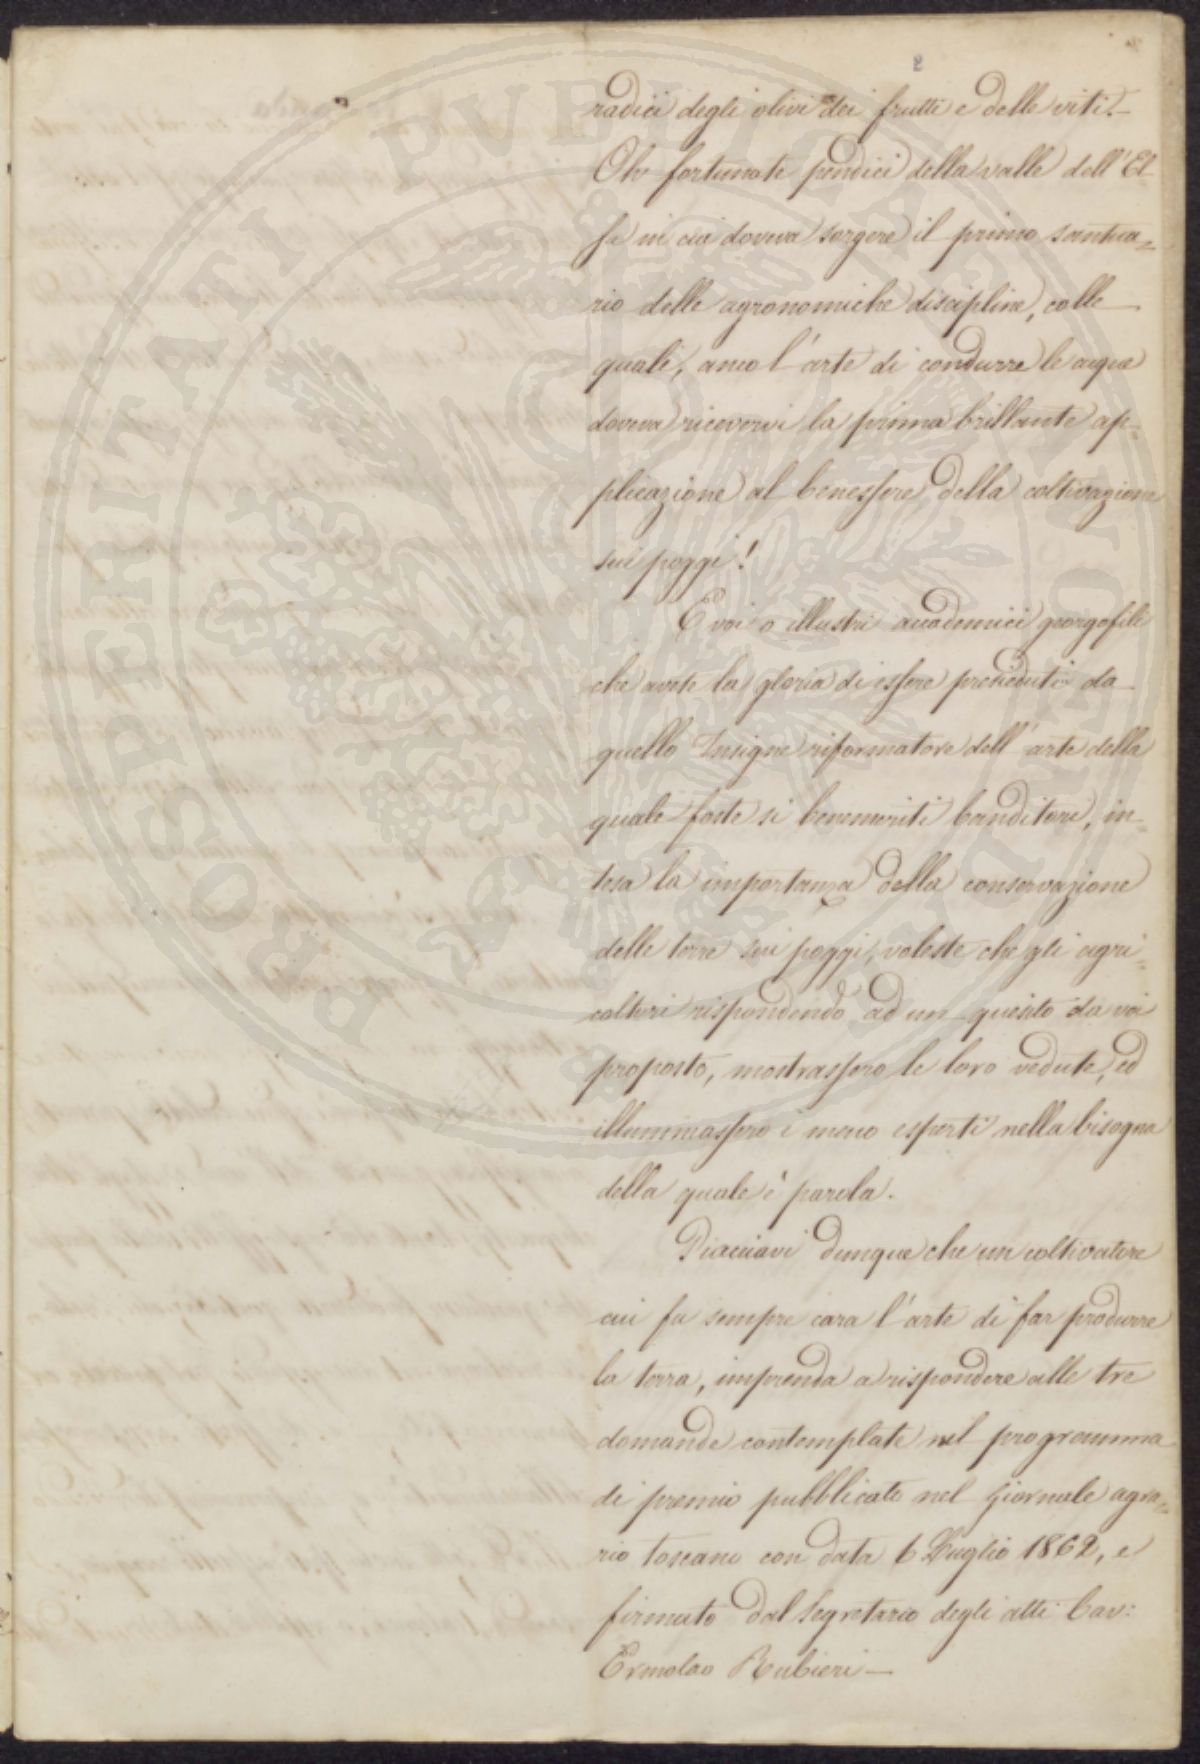 2
radici degli olivi dei frutti e delle viti.—
Oh fortunate pendici della valle dell'El-
sa in cui doveva sorgere il primo santua=
rio delle agronomiche discipline, colle
quali, anco l'arte di condurre le acque
doveva ricevervi la prima brillante ap=
plicazione al benessere della coltivazione
sui poggi!
E voi o illustri accademici georgofili
che avete la gloria di essere preseduti da
quello Insigne riformatore dell'arte della
quale foste si benemeriti banditori, in=
tesa la importanza della conservazione
delle terre sui poggi, voleste che gli agri=
coltori rispondendo ad un quesito da voi
proposto, mostrassero le loro vedute, ed
illuminassero i meno esperti nella bisogna
della quale è parola.
Piacciavi dunque che un coltivatore
cui fu sempre cara l'arte di far produrre
la terra, imprenda a rispondere alle tre
domande contemplate nel programma
di premio pubblicato nel Giornale agra=
rio toscano con data 6 Luglio 1862, e
firmato dal Segretario degli atti Cav:
Ermolao Rubieri —
PROSPERITATI PUBLICAE AUGENDAE